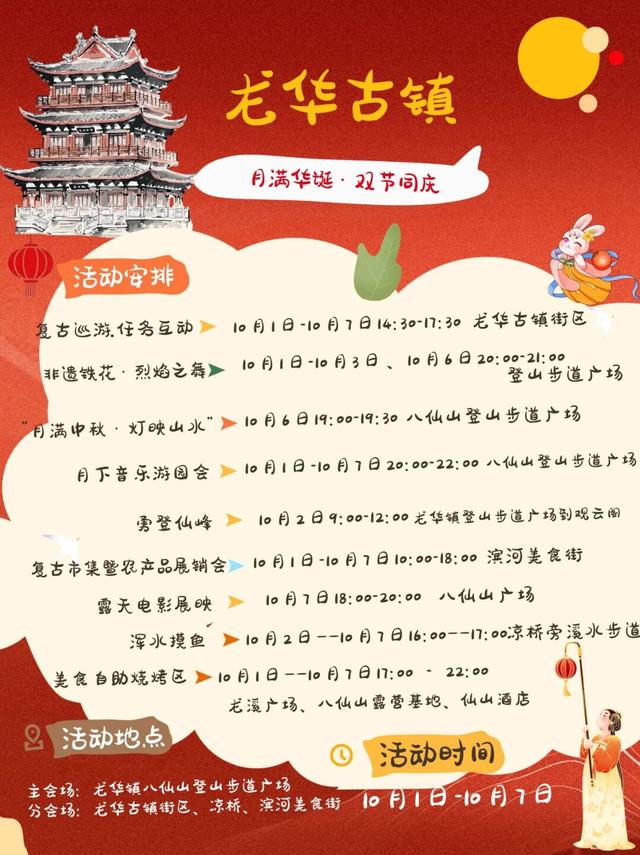 龙华古镇
月满华诞·双节同庆
活动安排
复古巡游任务互动 10月1日-10月7日14:30-17:30 龙华古镇街区
非遗铁花·烈焰之舞 10月1日-10月3日、10月6日20:00-21:00
登山步道广场
“月满中秋·灯映山水” 10月6日19:00-19:30 八仙山登山步道广场
月下音乐游园会 10月1日-10月7日20:00-22:00 八仙山登山步道广场
勇登仙峰 10月2日9:00-12:00 龙华镇登山步道广场到观云阁
复古市集暨农产品展销会 10月1日-10月7日10:00-18:00 滨河美食街
露天电影展映 10月7日18:00-20:00 八仙山广场
浑水摸鱼 10月2日--10月7日16:00--17:00凉桥旁溪水步道
美食自助烧烤区 10月1日--10月7日17:00 - 22:00
龙溪广场、八仙山露营基地、仙山酒店
活动地点
活动时间
主会场：龙华镇八仙山登山步道广场
分会场：龙华古镇街区、凉桥、滨河美食街
10月1日-10月7日